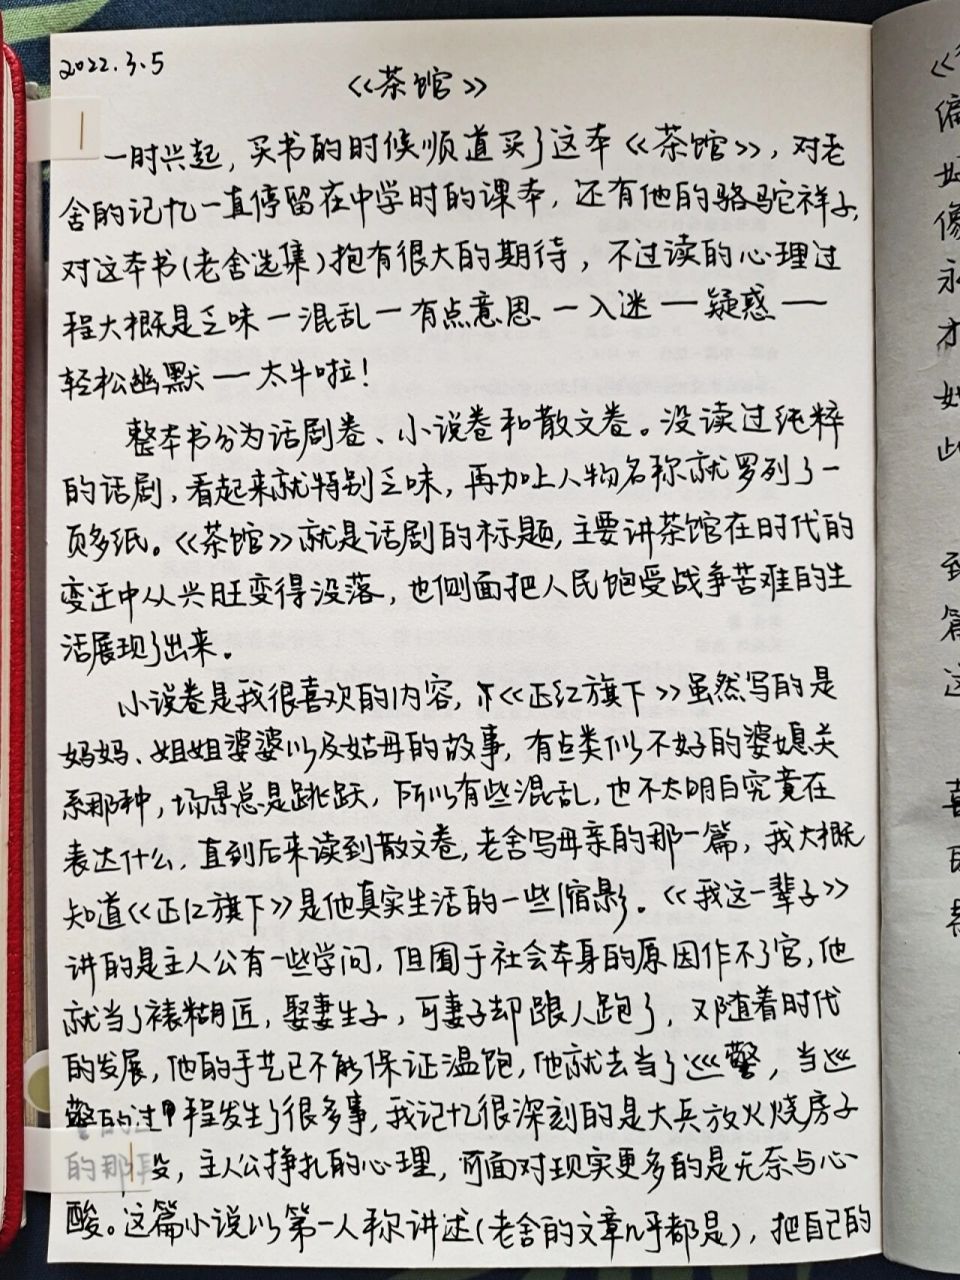 2022.3.5
《茶馆》
一时兴起，买书的时候顺道买了这本《茶馆》，对老
舍的记忆一直停留在中学时的课本，还有他的骆驼祥子，
对这本书(老舍选集)抱有很大的期待，不过读的心理过
程大概是乏味一混乱一有点意思一入迷一疑惑一
轻松幽默一太牛啦！
整本书分为话剧卷、小说卷和散文卷。没读过纯粹
的话剧，看起来就特别乏味，再加上人物名称就罗列了一
页多纸。《茶馆》就是话剧的标题，主要讲茶馆在时代的
变迁中从兴旺变得没落，也侧面把人民饱受战争苦难的生
活展现了出来。
小说卷是我很喜欢的内容，《正红旗下》虽然写的是
妈妈、姐姐婆婆以及姑母的故事，有点类似不好的婆媳关
系那种，场景总是跳跃，所以有些混乱，也不太明白究竟在
表达什么，直到后来读到散文卷，老舍写母亲的那一篇，我大概
知道《正红旗下》是他真实生活的一些缩影。《我这一辈子》
讲的是主人公有一些学问，但囿于社会本身的原因作不了官，他
就当了裱糊匠，娶妻生子，可妻子却跟人跑了，又随着时代
的发展，他的手艺已不能保证温饱，他就去当了巡警，当巡
警的过程发生了很多事，我记忆很深刻的是大兵放火烧房子
的那段，主人公挣扎的心理，可面对现实更多的是无奈与心
酸。这篇小说以第一人称讲述(老舍的文章几乎都是)，把自己的